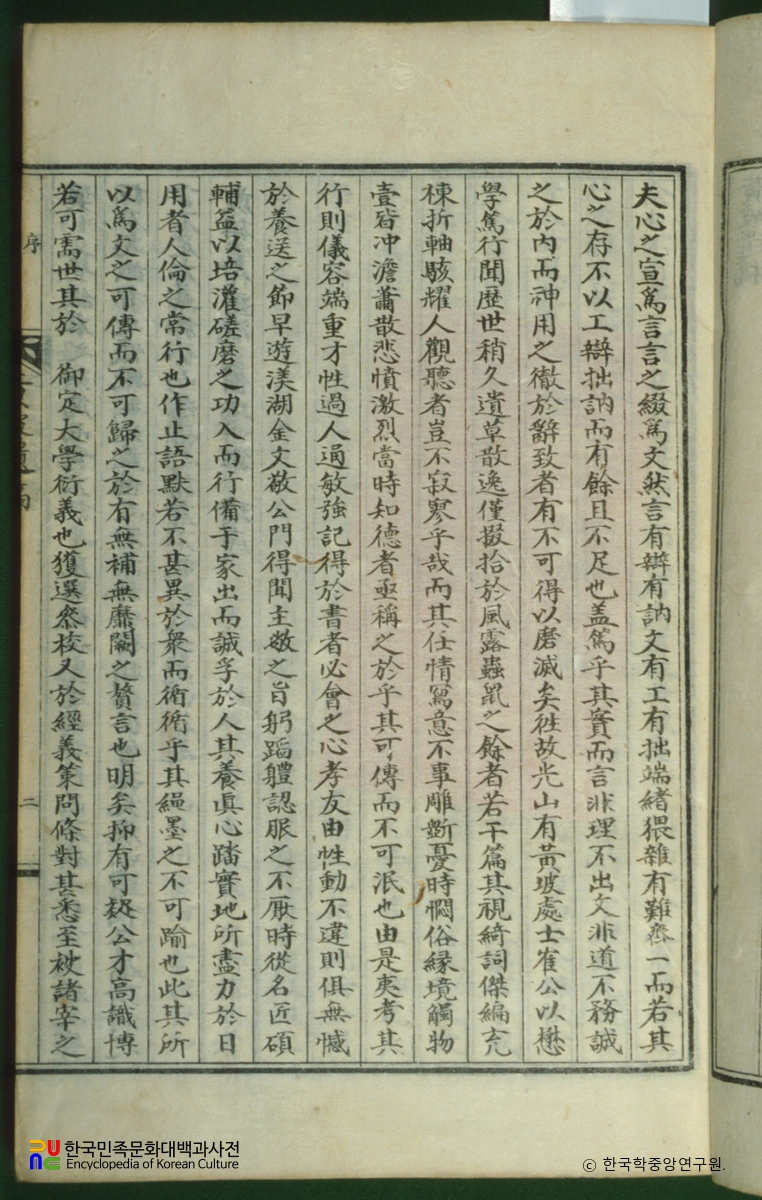 夫心之宣爲言言之綴爲文然言有辯有訥文有工有拙端緒猥雜有難齊一而若其
心之存不以工辯拙訥而有餘且不足也盖篤乎其實而言非理不出文非道不務誠
之於內而神用之徹於辭致者有不可得以磨滅矣徃故光山有黃坡處士崔公以懋
學篤行聞歷世稍久遺草散逸僅掇拾於風露蟲鼠之餘者若干篇其視綺詞傑編充
棟折軸駭耀人觀聽者豈不寂寥乎哉而其任情寫意不事雕斲憂時憫俗緣境觸物
壹皆冲澹蕭散悲憤激烈當時知德者亟稱之於乎其可傳而不可泯也由是夷考其
行則儀容端重才性過人通敏強記得於書者必會之心孝友由性動不違則俱無憾
於養送之節早遊渼湖金文敬公門得聞主敬之旨躬蹈軆認服之不厭時從名匠碩
輔益以培灌磋磨之功入而行備于家出而誠孚於人其養眞心踏實地所盡力於日
用者人倫之常行也作止語默若不甚異於衆而循循乎其繩墨之不可踰也此其所
以爲文之可傳而不可歸之於有無補無靡闕之贅言也明矣抑有可疑公才高識博
若可需世其於 御定大學衍義也獲選叅校又於經義策問條對甚悉至被諸宰之
序
二
한국민족문화대백과사전
Encyclopedia of Korean Culture
ⓒ 한국학중앙연구원.